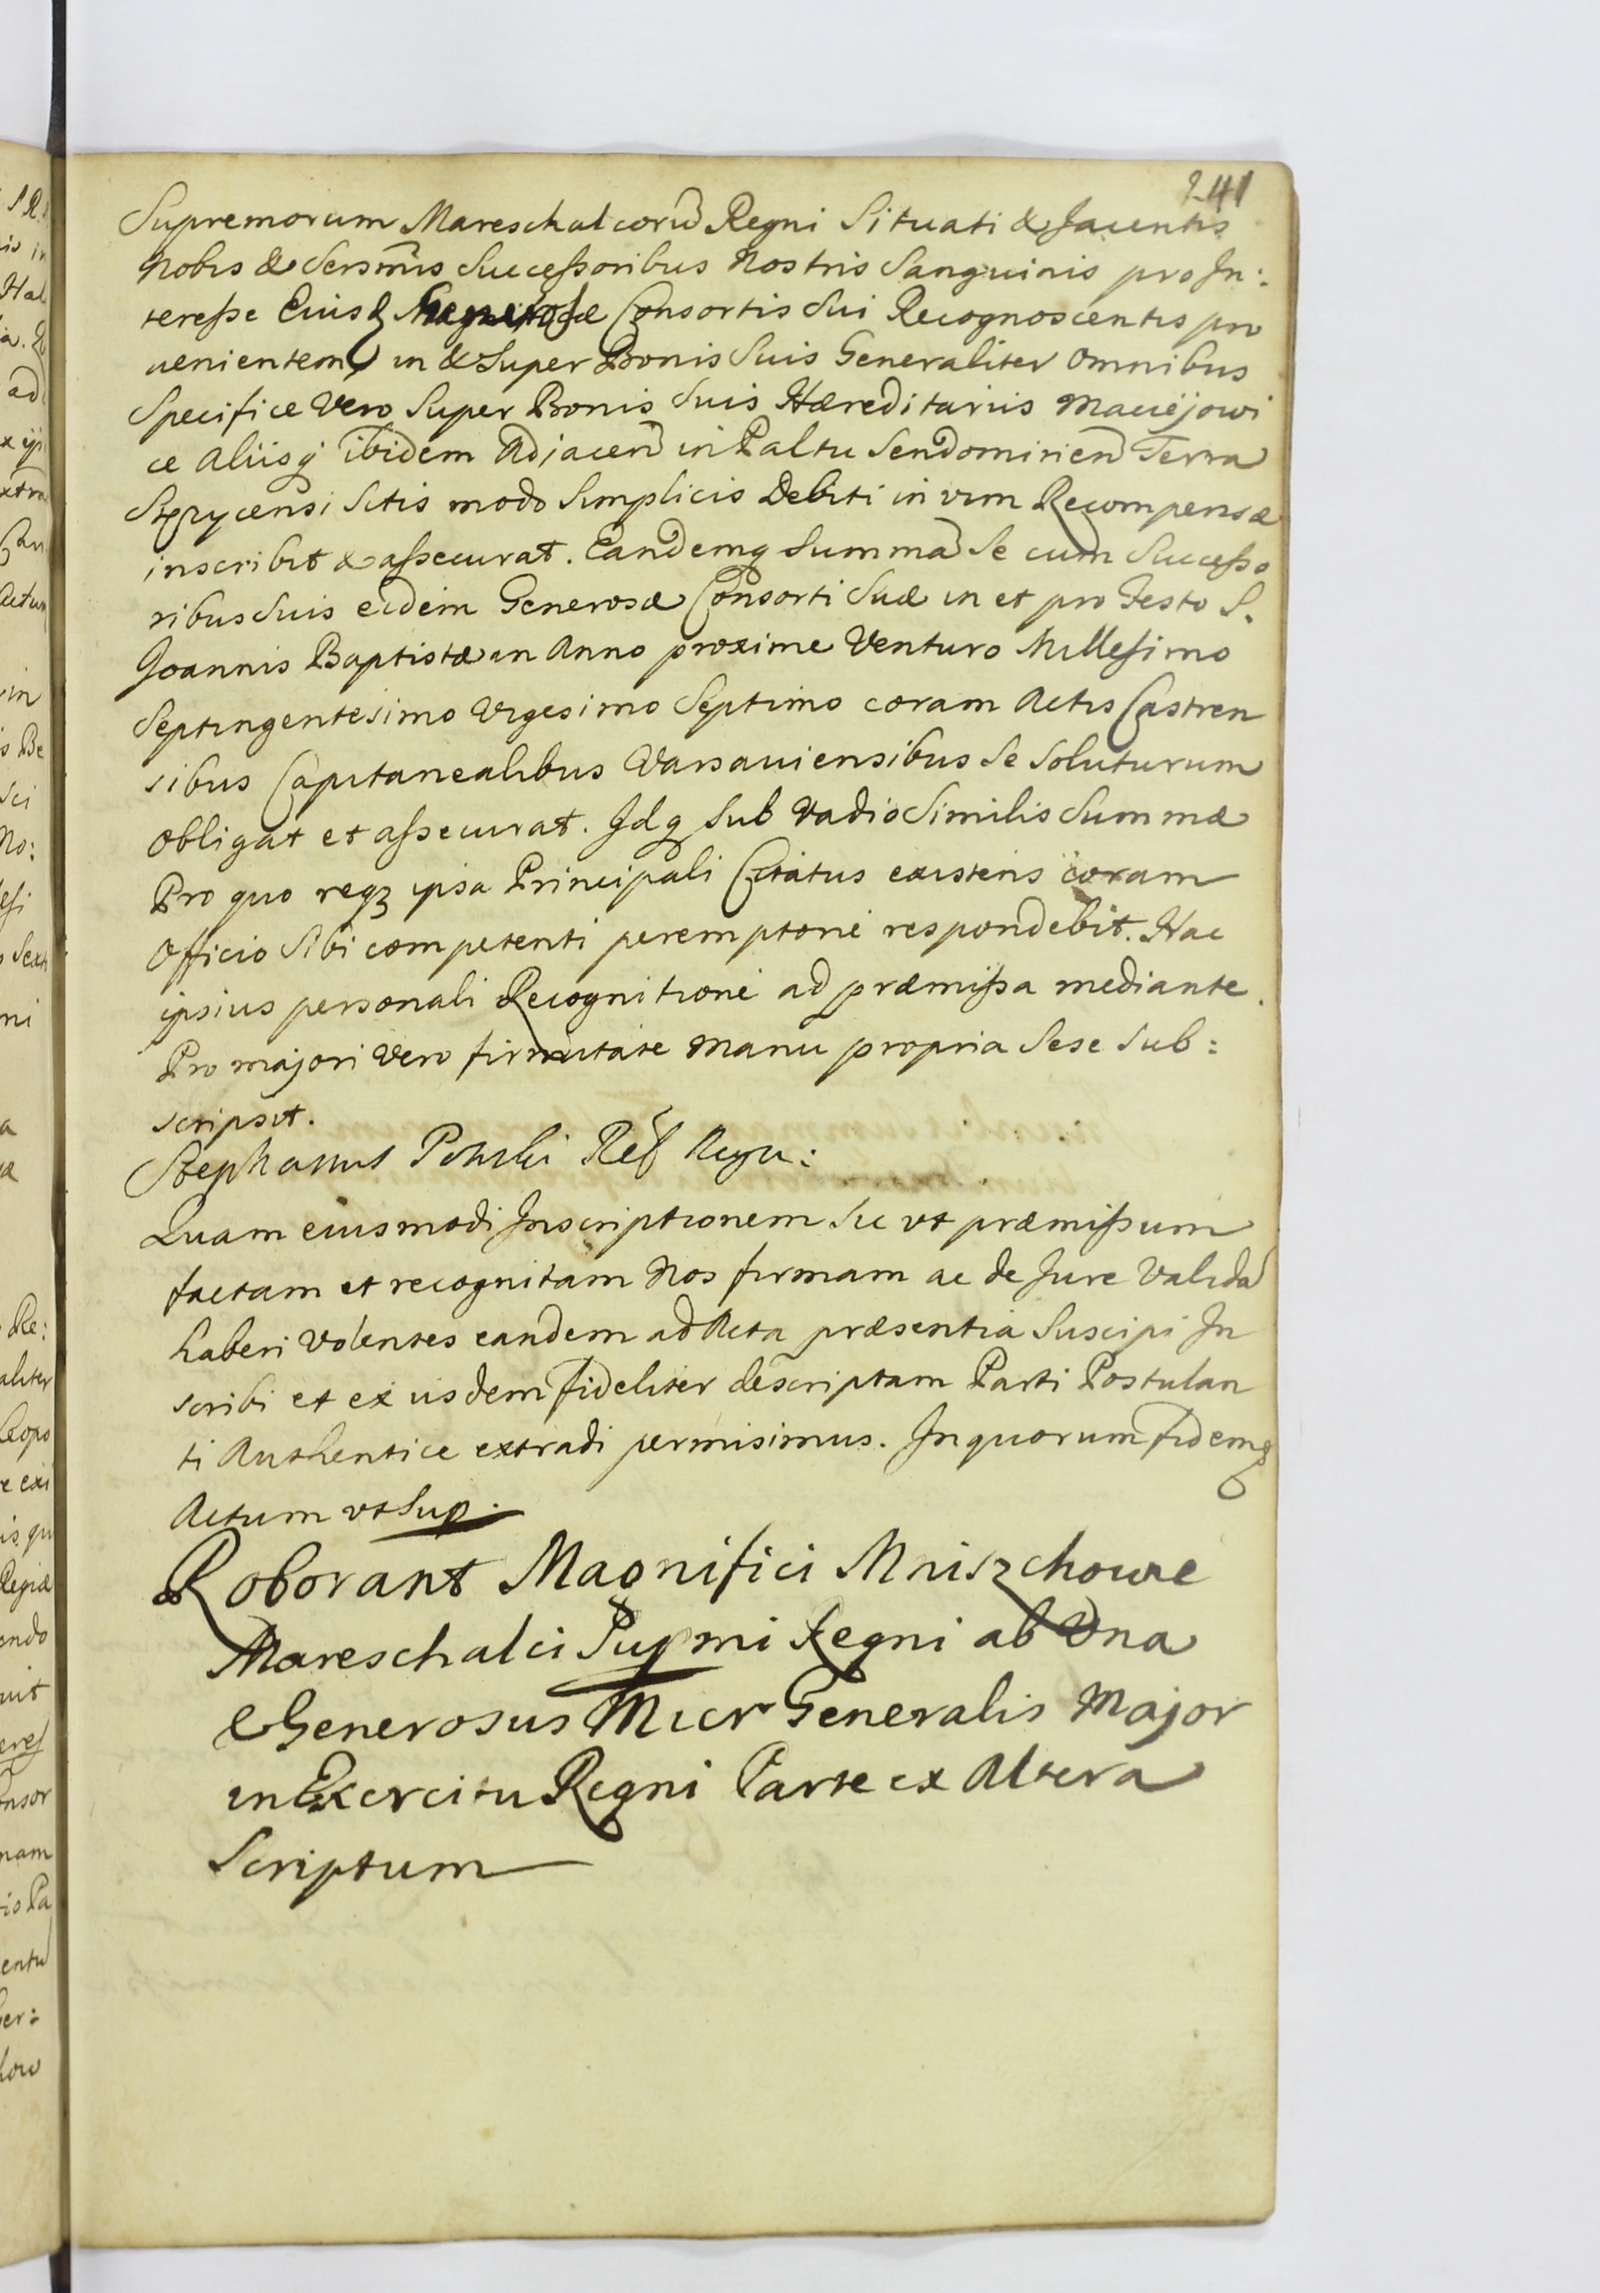 241
Supremorum Mareschalcorū Regni Situati & Jacentis
Nobis & Sersmis Successoribus Nostris Sanguinis pro In:
teresse Eiusd Generosæ Consortis Sui Recognoscentis pro
uenientem in & Super Bonis Suis Generaliter Omnibus
Specifice Vero Super Bonis Suis Hæreditariis Maciejowi
ce Aliisq ibidem Adjacen in Paltu Sendomirien Terra
Stęzycensi Sitis modo Simplicis Debiti in vim Recompensæ
inscribit & assecurat. Eandemq Summā Se cum Successo
ribus Suis eidem Generosæ Consorti Suæ in et pro Festo S.
Joannis Baptistæ in Anno proxime Venturo Millesimo
Septingentesimo Vigesimo Septimo coram Actis Castren
sibus Capitanealibus Varsauiensibus Se Soluturum
Obligat et assecurat. Idq Sub Vadio Similis Summæ
Pro quo reqz ipsa Principali Citatus existens coram
Officio Sibi competenti peremptorie respondebit. Hac
ipsius personali Recognitione ad præmissa mediante.
Pro majori Vero firmitate Manu propria Sese Sub:
scripsit.
Stephanus Potulicki Ref Regn:
Quam eiusmodi Inscriptionem Sic vt præmissum
factam et recognitam Nos firmam ac de Jure Validā
haberi Volentes eandem ad Acta præsentia Suscipi In
scribi et ex iisdem fideliter descriptam Parti Postulan
ti Authentice extradi permisimus. In quorum fidemq
Actum vt Sup.
Roborant Magnifici Mniszchowie
Mareschalci Supmi Regni ab Vna
& Generosus Micr Generalis Major
in Exercitu Regni Parte ex Altera
Scriptum